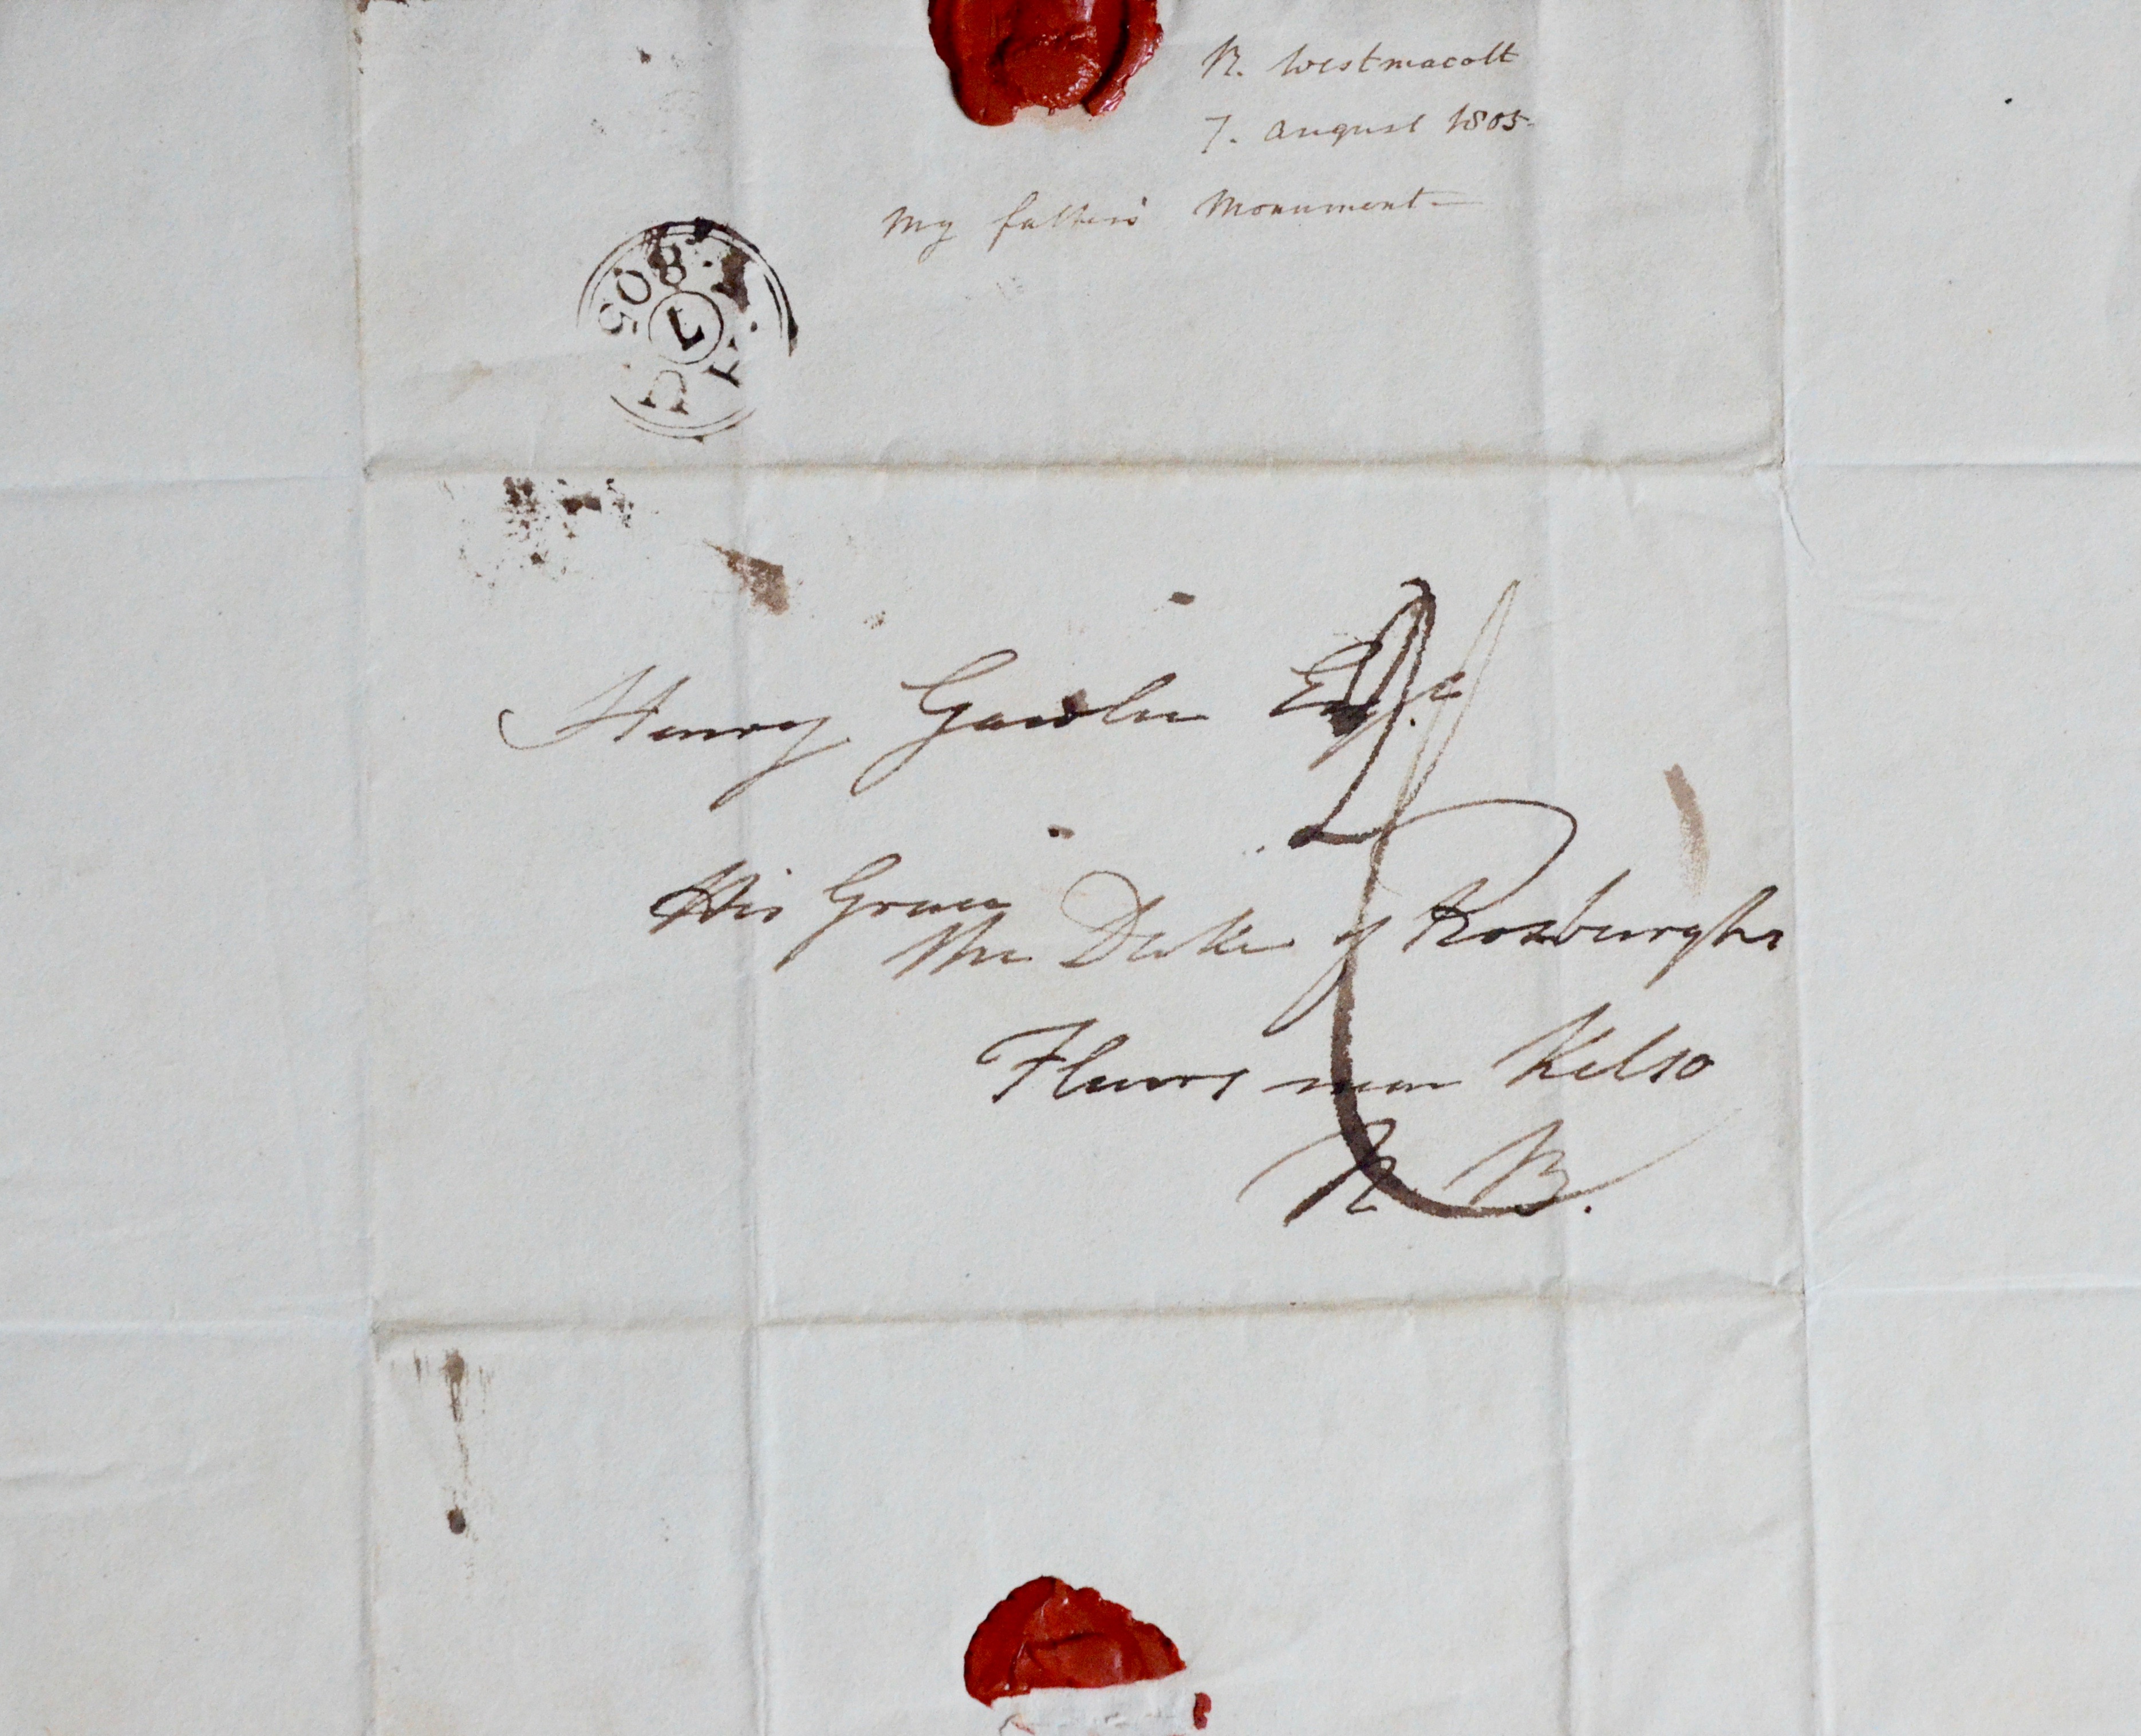 R. Westmacott
7. August 1805
My father's Monument
AU
7
805
Henry Gawler Esqr
His Grace
The Duke of Roxburghe
Fleurs near Kelso
N B.